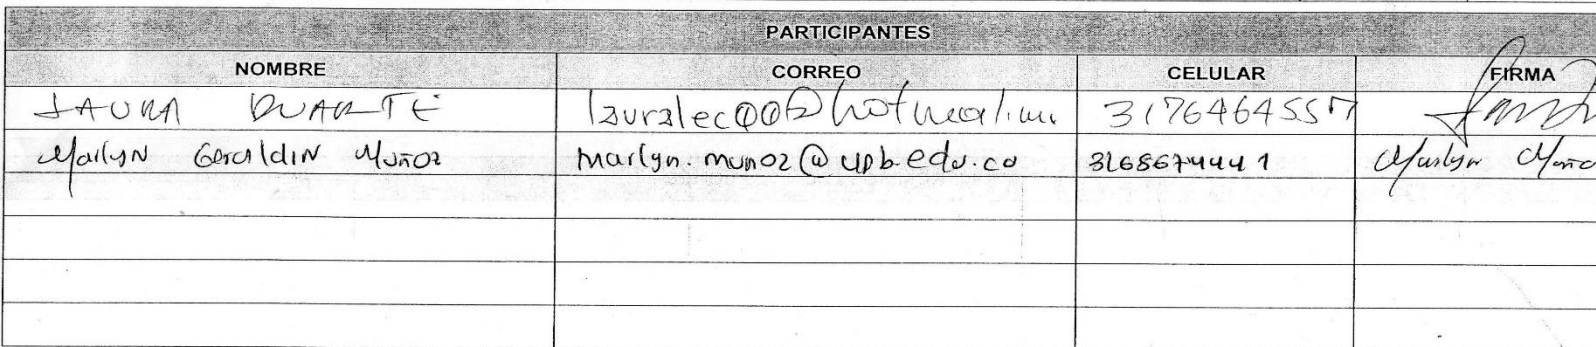 PARTICIPANTES
NOMBRE CORREO CELULAR FIRMA
LAURA DUARTE 3176464557
Marlyn Geraldin Muñoz marlyn.munoz@upb.edu.co 3168674441 Marlyn Muño